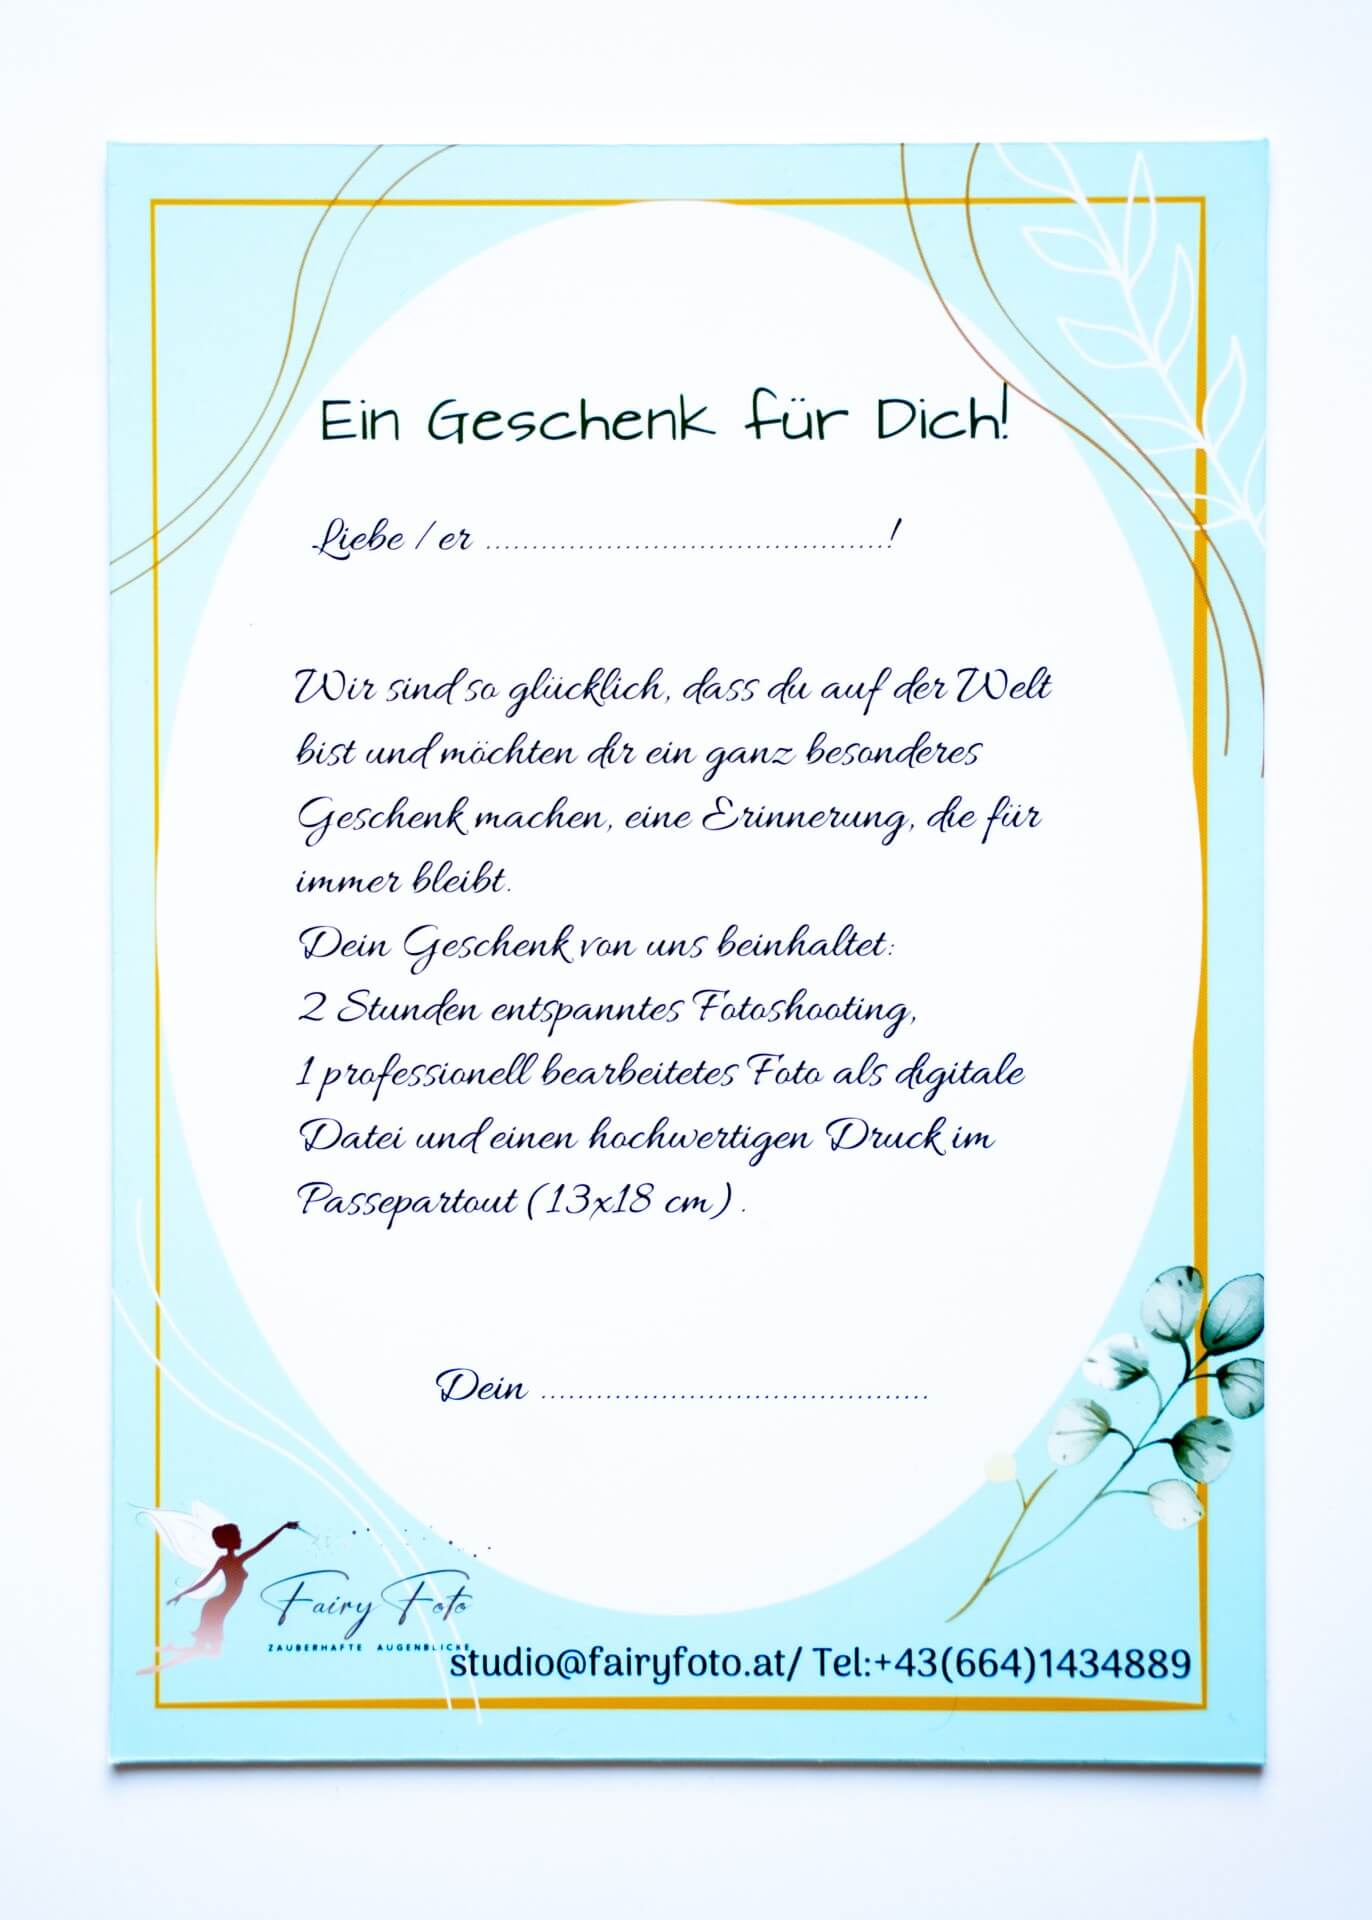 Ein Geschenk für Dich!
Liebe / er ............................................!
Wir sind so glücklich, dass du auf der Welt
bist und möchten dir ein ganz besonderes
Geschenk machen, eine Erinnerung, die für
immer bleibt.
Dein Geschenk von uns beinhaltet:
2 Stunden entspanntes Fotoshooting,
1 professionell bearbeitetes Foto als digitale
Datei und einen hochwertigen Druck im
Passepartout (13x18 cm) .
Dein ...........................................
Fairy Foto
ZAUBERHAFTE AUGENBLICKE
studio@fairyfoto.at/ Tel:+43(664)1434889